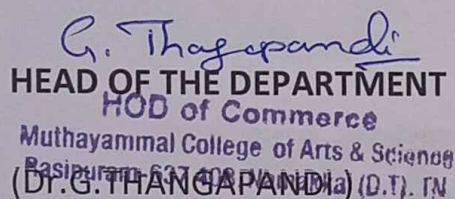 G. Thangapandi
HEAD OF THE DEPARTMENT
HOD of Commerce
Muthayammal College of Arts & Science
Rasipuram-637 408, (D.T). TN
(Dr.G.THANGAPANDI)